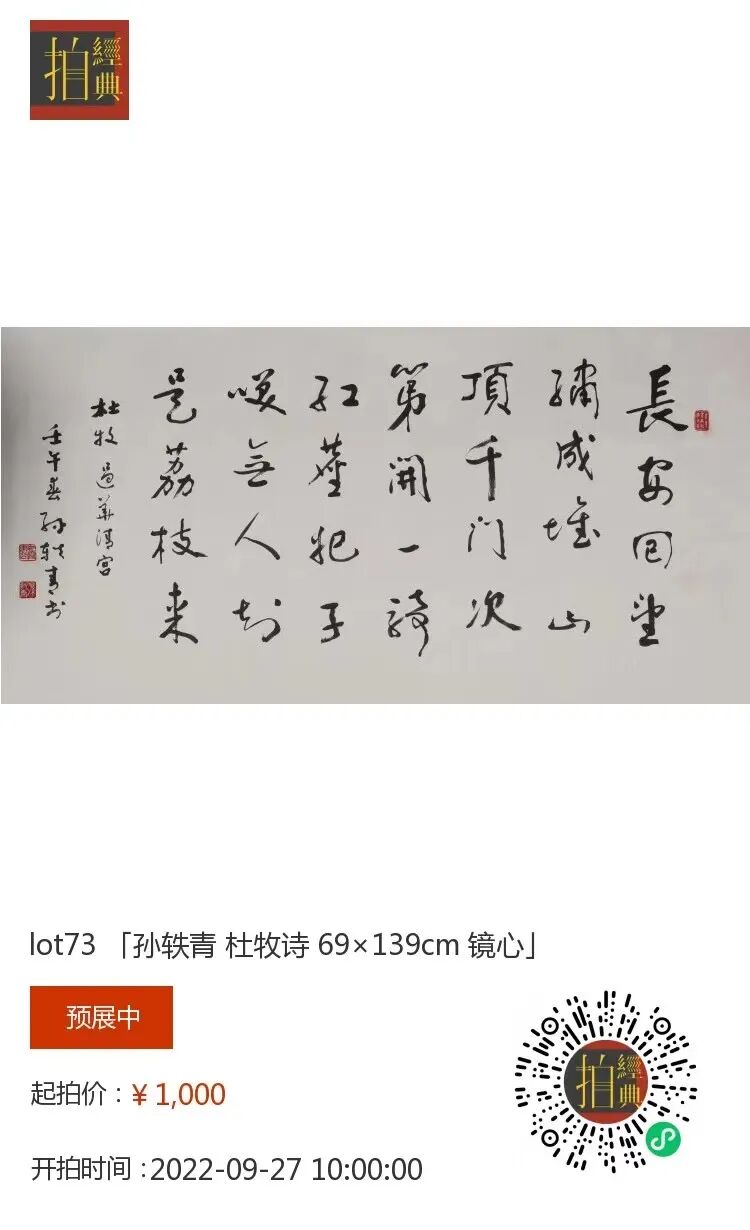 經典拍
長安回望
繡成堆山
頂千门次
第開一騎
红塵妃子
咲無人知
是荔枝来
杜牧 過華清宫
壬午春孙轶青书
lot73 「孙轶青 杜牧诗 69×139cm 镜心」
预展中
起拍价：¥ 1,000
开拍时间：2022-09-27 10:00:00
經典拍